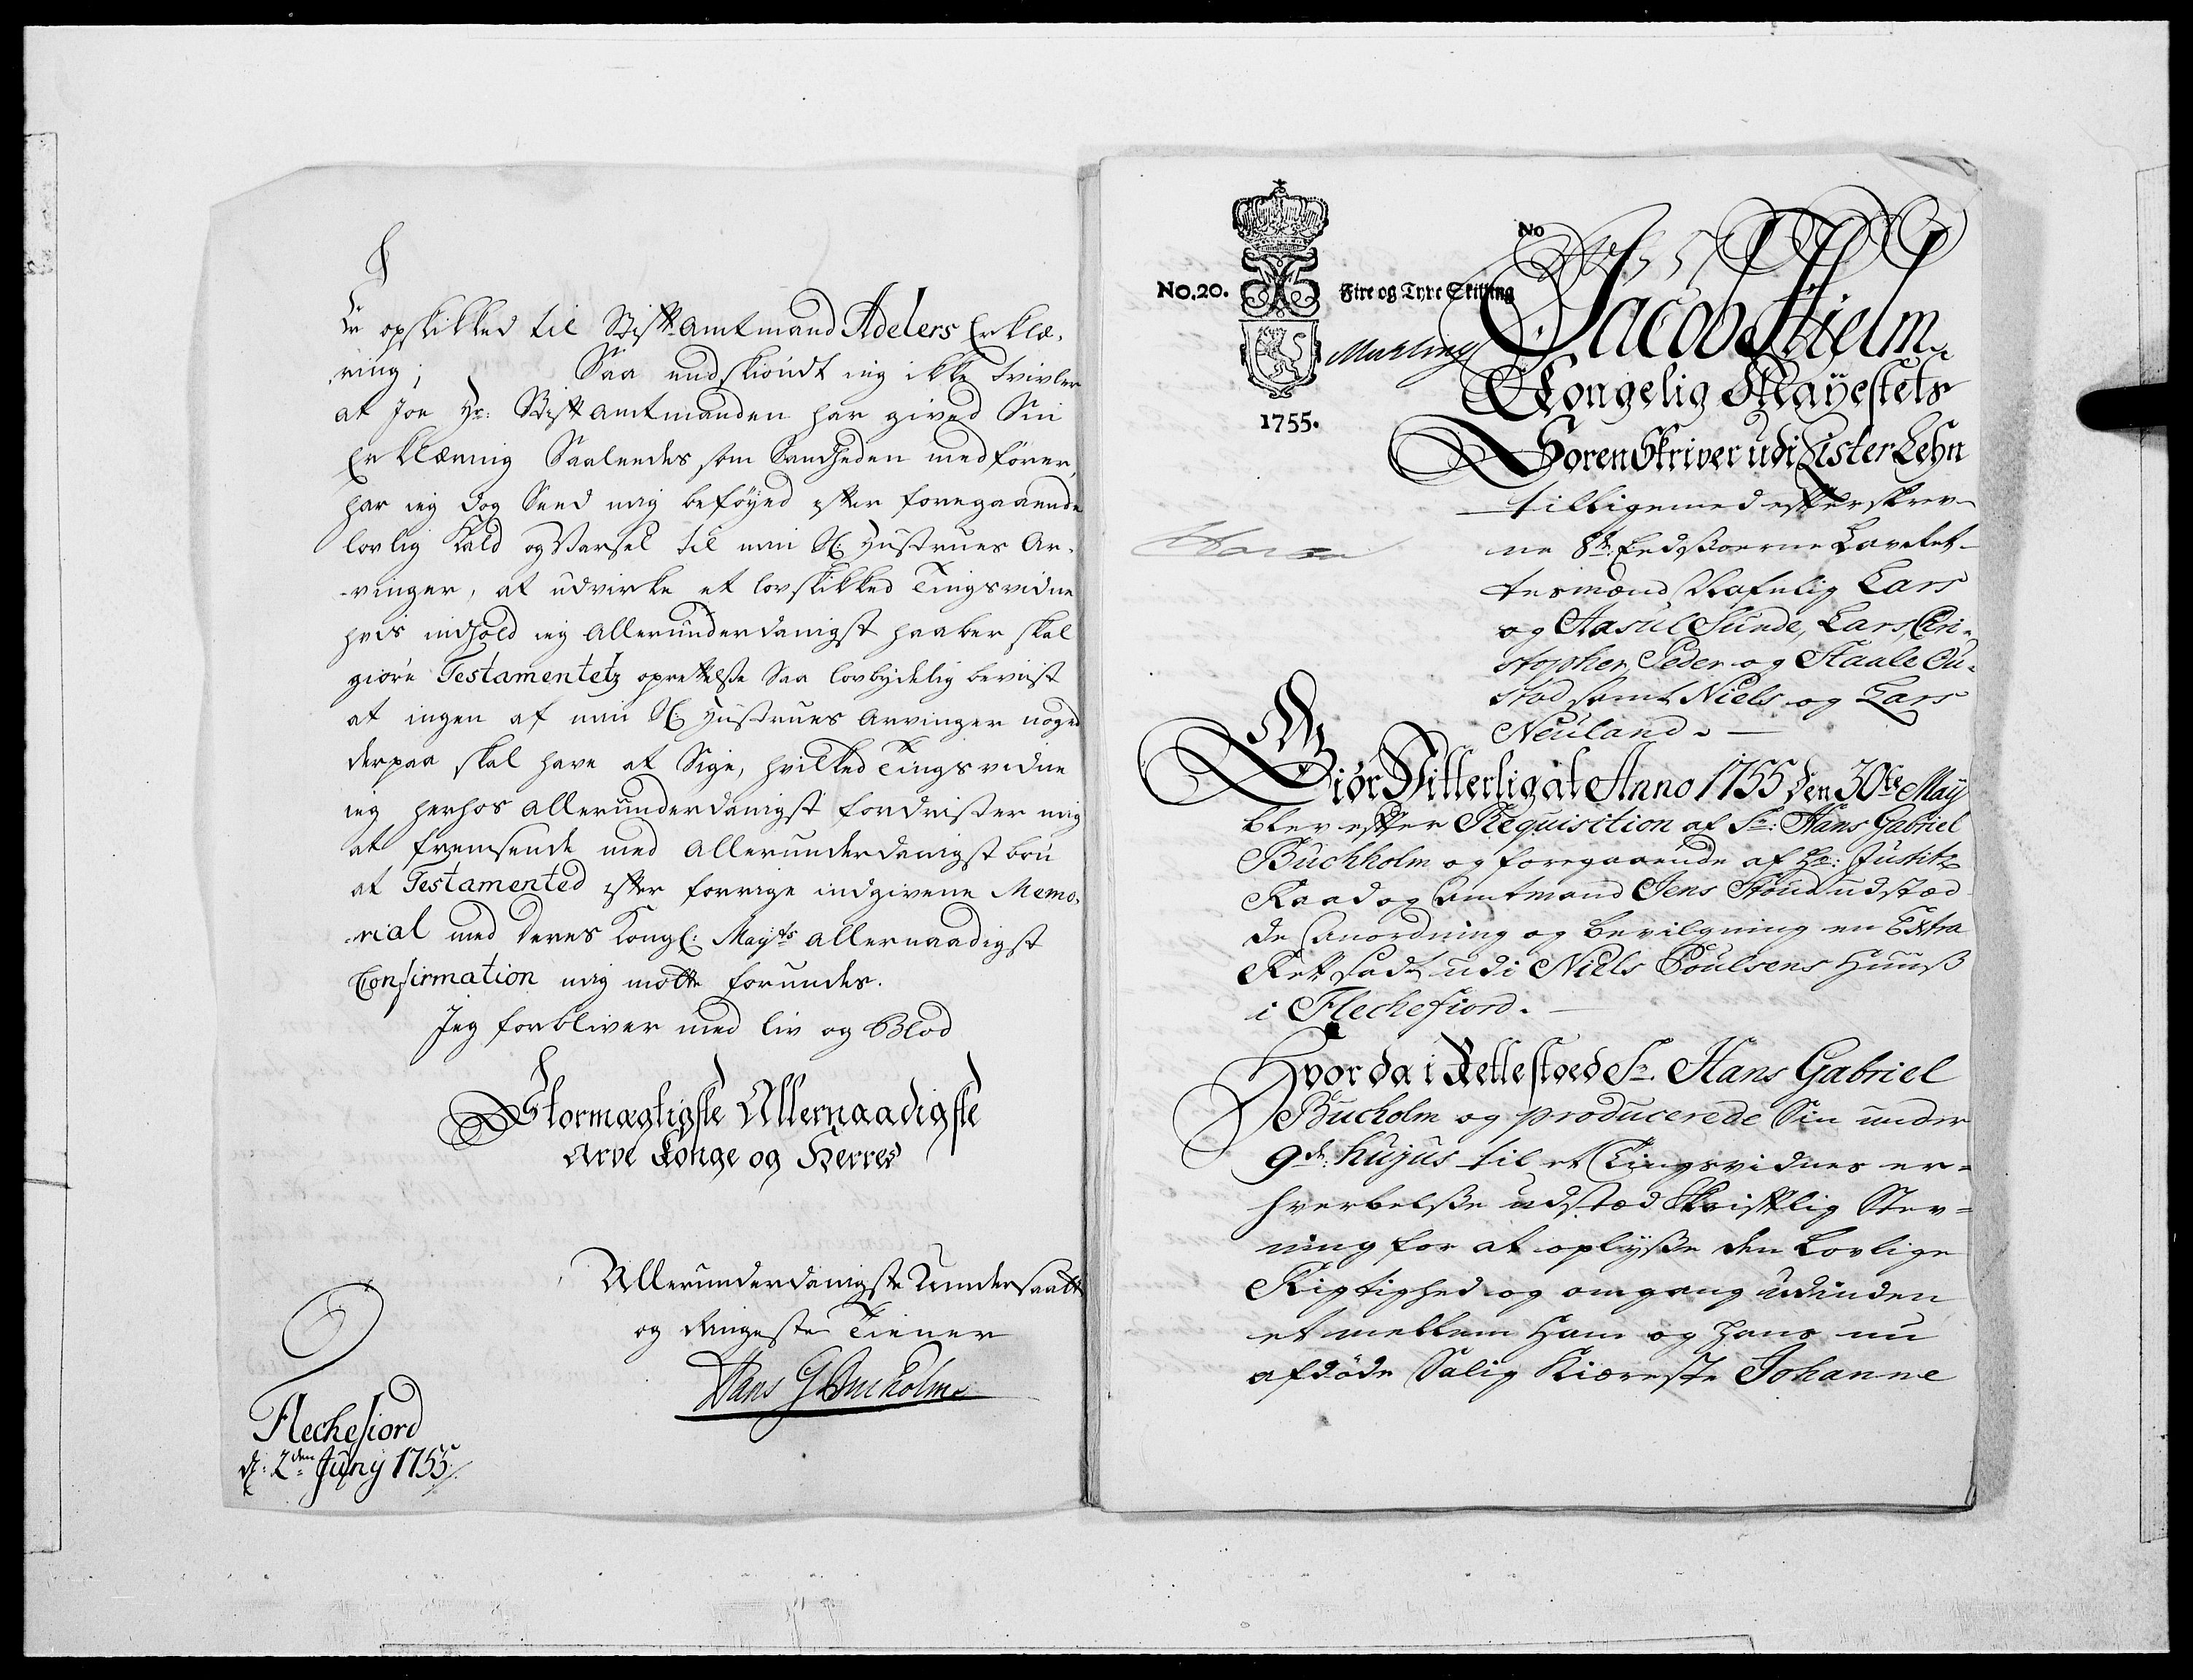 Er opskikked til Stiftamtmand Adelers Erklæ¬
ring; Saa endskiöndt ieg ikke tvivler
at Jo Hr: Stiftamtmanden har gived Sin
Erklæring Saaledes som Sandheden medförer,
har ieg dog Seed mig beföyed efter foregaaende
lovlig Kald og Varsel til min Sl: Hustrues Ar¬
vinger, at udvirke et lovskikked Tingsvidne
hvis indhold ieg Allerunderdanigst haaber skal
giöre Testamentetz oprettelsse Saa lovbydelig beviist
at ingen af min Sl: Hustrues Arvinger noged
derpaa skal have at Sige, hvilked Tingsvidne
ieg herhos allerunderdanigst fordrister mig
at fremsende med allerunderdanigst bön
at Testamented efter forrige indgivene Memo¬
rial med Deres Kongl: Mayts allernaadigst
Confirmation mig motte forundes.
Jeg forbliver med liv og Blod
Stormægtigste Allernaadigste
Arve Konge og Herres
Allerunderdanigste Undersaatt
og Ringeste Tiener
Hans G Bucholm
Flechefiord
d: 2den Juny 1755
No
No. 20. Fire og Tyve Skilling
1755.
Jacob Hielm
Kongelig Mayestets
SorenSkriver udi Lister Lehn
tilligemed efterskrev¬
ne 8te Eedssorne Lavrket¬
tesmænd Nafnlig Lars
og Aasul Sunde, Lars, Cri¬
stopher, Peder og Staale Ou¬
stad samt Niels og Lars
Neuland.
Giör Vitterlig at Anno 1755 den 30te May
blev efter Requisition af Sr: Hans Gabriel
Buchholm og foregaaende af Hr: Justitz
Raad og Amtmand Jens udstæd
de Anordning og bevilgning en Extra
Ret sadt udi Niels Poulsens Huuss
i Flechefiord.
Hvor da i Rette stoed Sr. Hans Gabriel
Bucholm og producerede Sin under
9de hujus til et Tingsvidnes er¬
hverbelsse udstæd Skriftlig Stev¬
ning for at oplysse den Lovlige
Rigtighed og omgang udinden
et mellem Ham og Hans nu
afdöde Salig Kiæreste Johanne